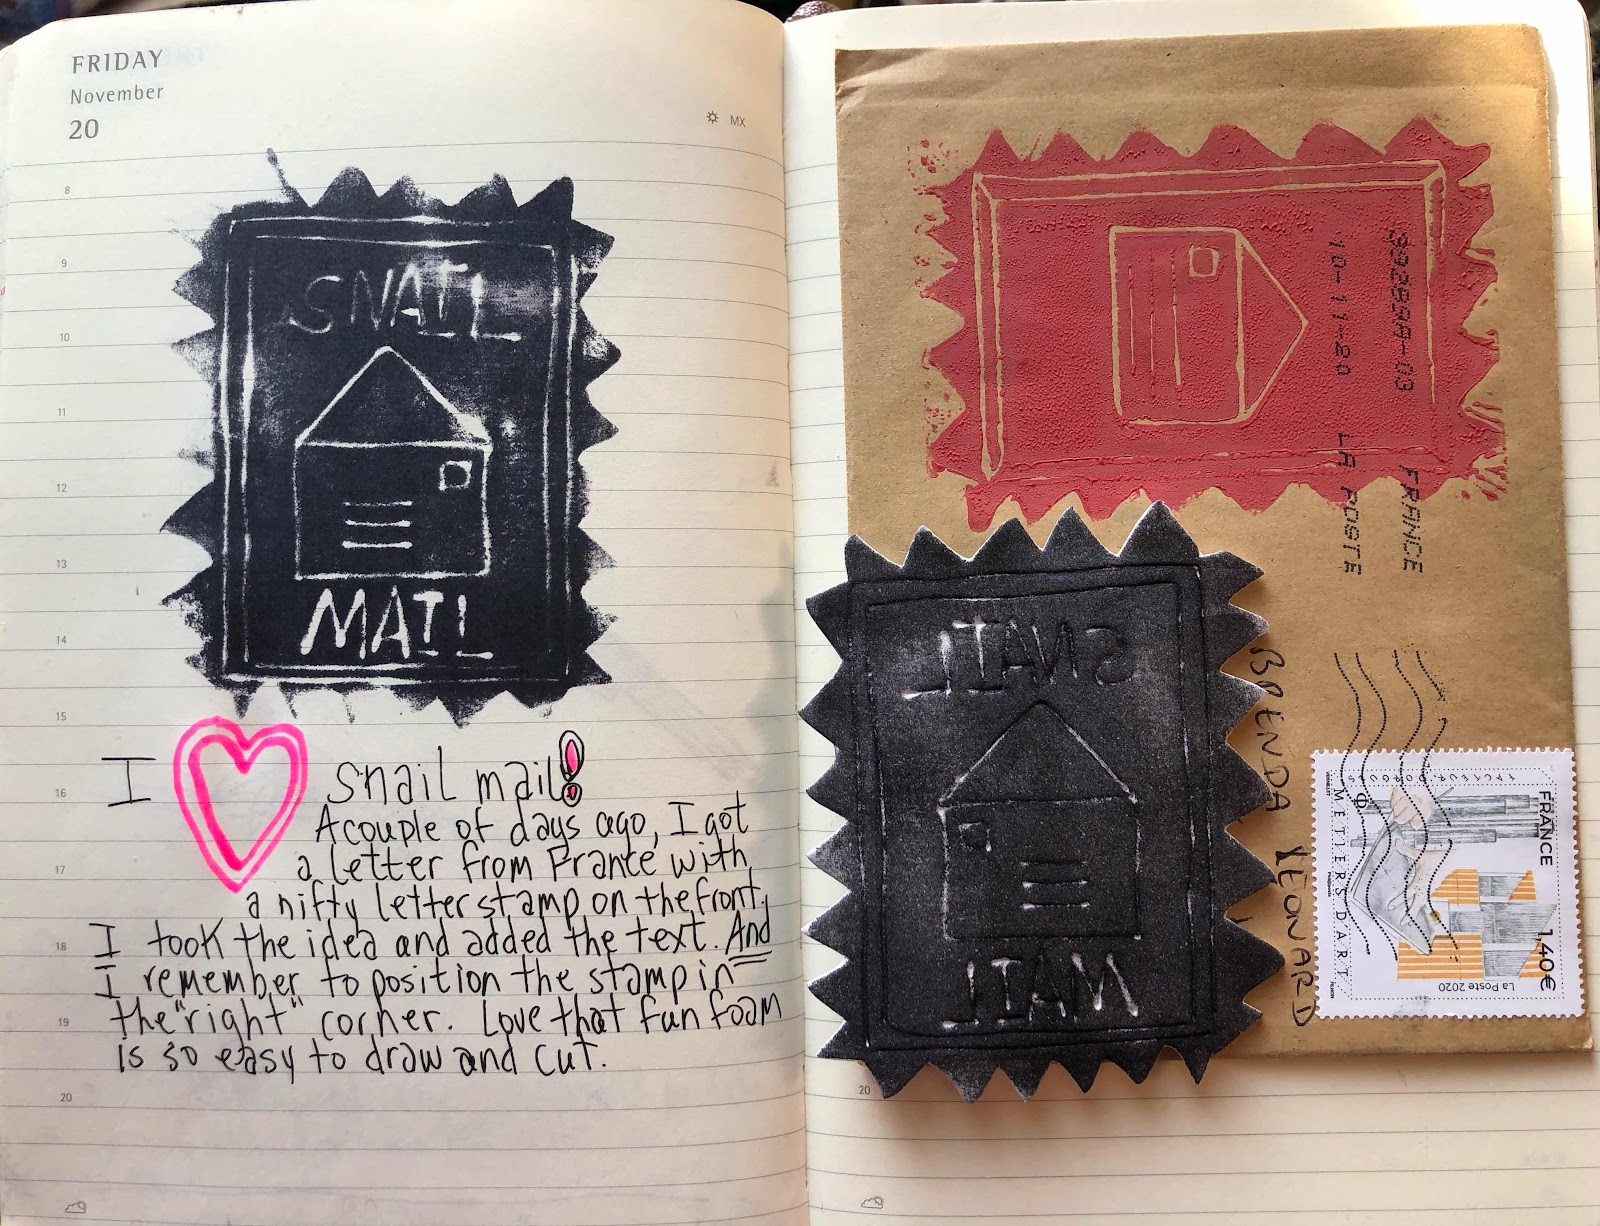 FRIDAY
November
20
MX
8
9
10
11
12
13
14
15
16
17
18
19
20
SNAIL
MAIL
I snail mail!
A couple of days ago, I got
a letter from France with
a nifty letter stamp on the front.
I took the idea and added the text. And
I remember to position the stamp in
the "right" corner. Love that fun foam
is so easy to draw and cut.
FRANCE
10-11-20 LA POSTE
SNAIL
MAIL
BRENDA
FRANCE
1,40€
La Poste 2020
MÉTIERS D'ART
20